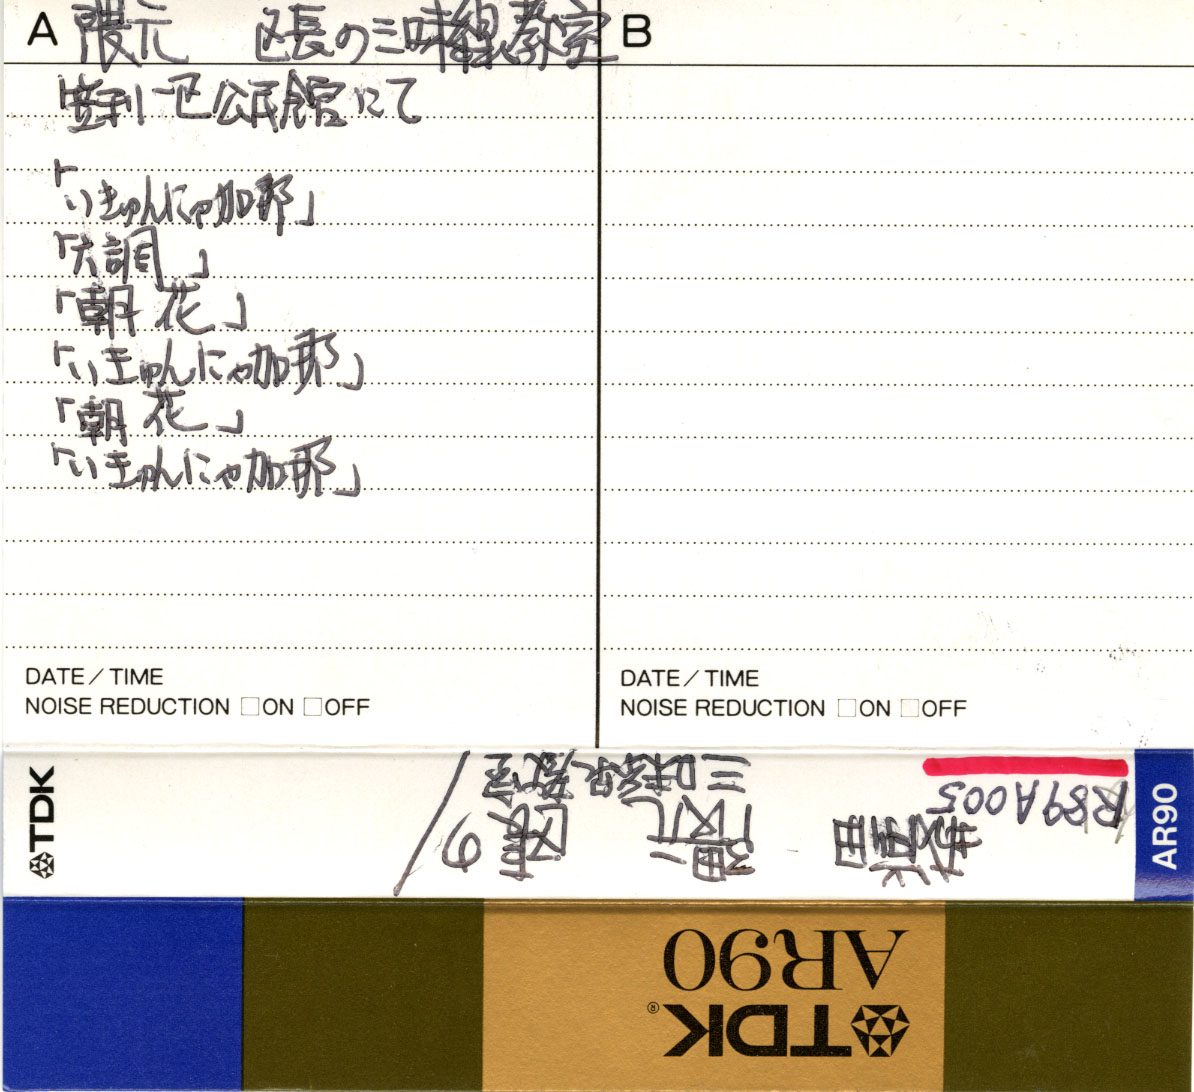 A 隈元 区長の三味線教室
B
公民館にて
「いきゅんにゃ加那」
「六調」
「朝花」
「いきゅんにゃ加那」
「朝花」
「いきゅんにゃ加那」
DATE/TIME
NOISE REDUCTION □ON □OFF
DATE/TIME
NOISE REDUCTION □ON □OFF
TDK
R89A005
三味線教室
AR90
AR90
TDK®